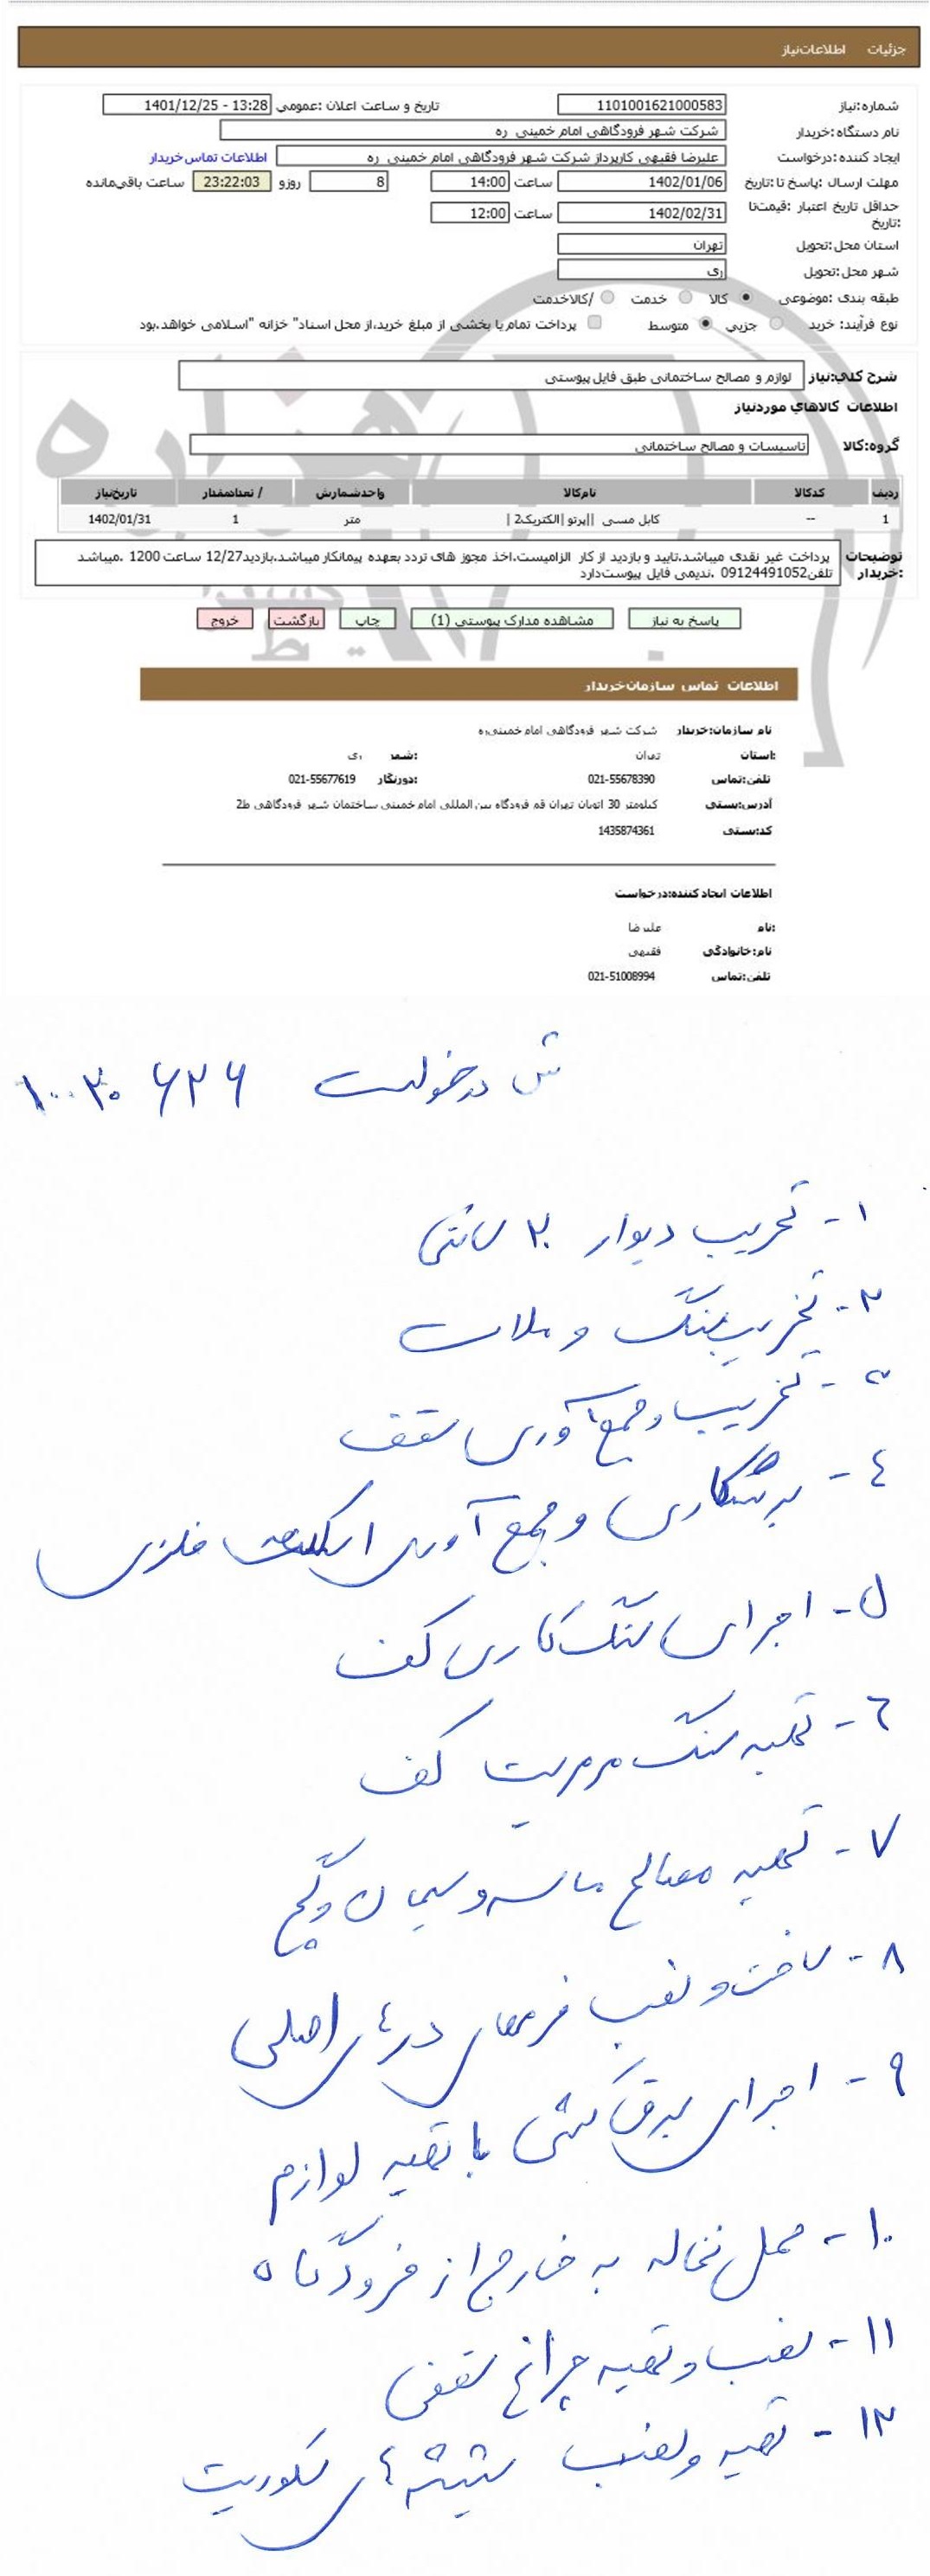 جزئیات اطلاعات نیاز
شماره نیاز: 1101001621000583 تاریخ و ساعت اعلان عمومی: 1401/12/25 - 13:28
نام دستگاه خریدار: شرکت شهر فرودگاهی امام خمینی ره
ایجاد کننده درخواست: علیرضا فقیهی کارپرداز شرکت شهر فرودگاهی امام خمینی ره اطلاعات تماس خریدار
مهلت ارسال پاسخ تا تاریخ: 1402/01/06 ساعت 14:00 8 روز و 23:22:03 ساعت باقی‌مانده
حداقل تاریخ اعتبار قیمت تا تاریخ: 1402/02/31 ساعت 12:00
استان محل تحویل: تهران
شهر محل تحویل: ری
طبقه بندی موضوعی: کالا خدمت کالا/خدمت
نوع فرآیند خرید: جزیی متوسط پرداخت تمام یا بخشی از مبلغ خرید، از محل "اسناد خزانه اسلامی" خواهد بود.
شرح کلی نیاز: لوازم و مصالح ساختمانی طبق فایل پیوستی
اطلاعات کالاهای مورد نیاز
گروه کالا: تاسیسات و مصالح ساختمانی
ردیف کد کالا نام کالا واحد شمارش تعداد / مقدار تاریخ نیاز
1 -- کابل مسی || پرتو الکتریک | 2 | متر 1 1402/01/31
توضیحات خریدار: پرداخت غیر نقدی میباشد.تایید و بازدید از کار الزامیست.اخذ مجوز های تردد بعهده پیمانکار میباشد.بازدید 12/27 ساعت 1200 میباشد.
تلفن 09124491052 ندیمی. فایل پیوست دارد
پاسخ به نیاز مشاهده مدارک پیوستی (1) چاپ بازگشت خروج
اطلاعات تماس سازمان خریدار
نام سازمان خریدار: شرکت شهر فرودگاهی امام خمینی ره
استان: تهران شهر: ری
تلفن تماس: 021-55678390 دورنگار: 021-55677619
آدرس پستی: کیلومتر 30 اتوبان تهران قم فرودگاه بین المللی امام خمینی ساختمان شهر فرودگاهی ط2
کد پستی: 1435874361
اطلاعات ایجاد کننده درخواست:
نام: علیرضا
نام خانوادگی: فقیهی
تلفن تماس: 021-51008994
ش درخواست ۱۰۰۳۰۶۲۶
۱- تخریب دیوار ۲۰ سانتی
۲- تخریب سنگ و ملات
۳- تخریب و جمع آوری سقف
۴- برشکاری و جمع آوری اسکلت فلزی
۵- اجرای سنگ کاری کف
۶- تهیه سنگ مرمریت کف
۷- تهیه مصالح ماسه و سیمان و گچ
۸- ساخت و نصب فریمهای درهای اصلی
۹- اجرای برق کشی با تهیه لوازم
۱۰- حمل نخاله به خارج از فرودگاه
۱۱- نصب و تهیه چراغ سقفی
۱۲- تهیه و نصب شیشه های سکوریت